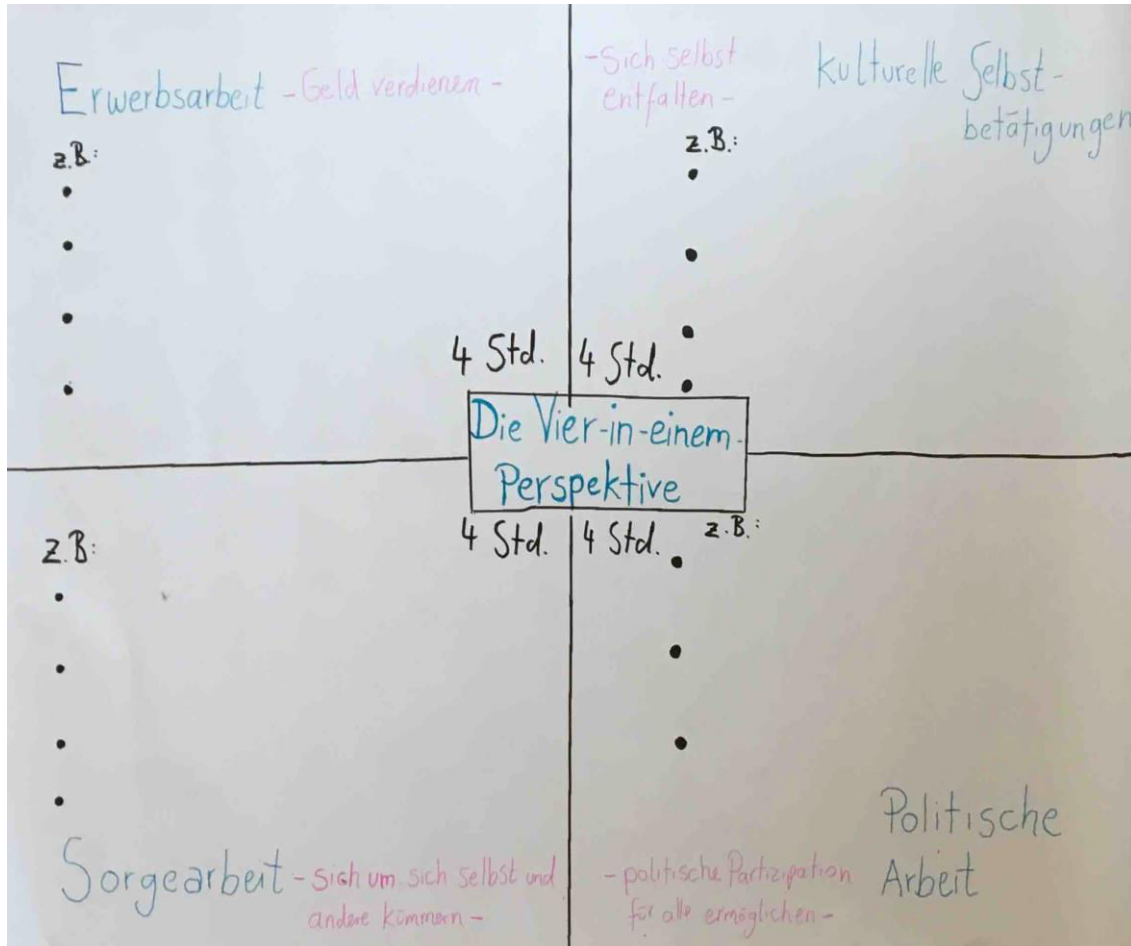 Erwerbsarbeit - Geld verdienen -
z.B.:
- Sich selbst
entfalten -
kulturelle Selbst-
betätigungen
z.B.:
4 Std.
4 Std.
Die Vier-in-einem-
Perspektive
4 Std.
4 Std.
z.B:
Sorgearbeit - sich um sich selbst und
andere kümmern -
z.B.:
- politische Partizipation
für alle ermöglichen -
Politische
Arbeit